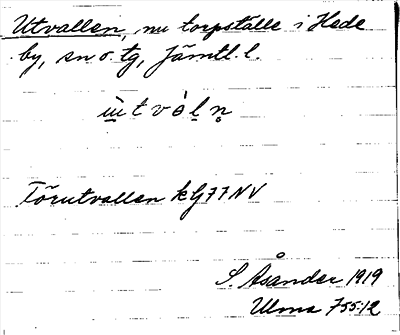 Utvallen, nu torpställe i Hede
by, sn o. tg, Jämtl. l.
ùtvòḷn̥
Förutvallen kG77NV
S. Åsander 1919
Ulma 755:12